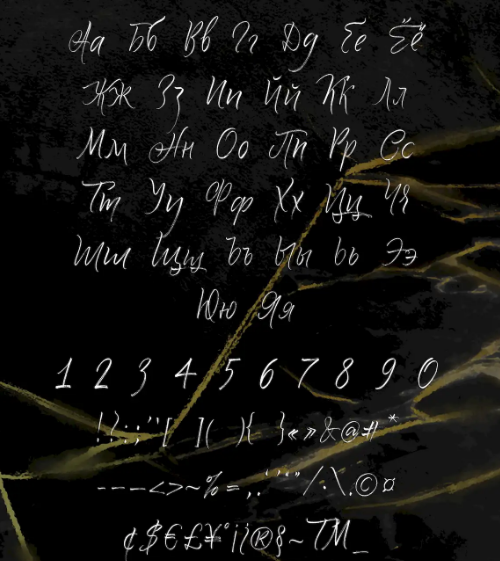 Аа Бб Вв Гг Дд Ее Ёё
Жж Зз Ии Йй Кк Лл
Мм Нн Оо Пп Рр Сс
Тт Уу Фф Хх Цц Чч
Шш Щщ Ъъ Ыы Ьь Ээ
Юю Яя
1 2 3 4 5 6 7 8 9 0
!?:;'"[ ]( ){ }«»&@#*
-–—<>~%=,.‘’“”/·\.©¤
¢$€£¥°¡¿®§~TM_